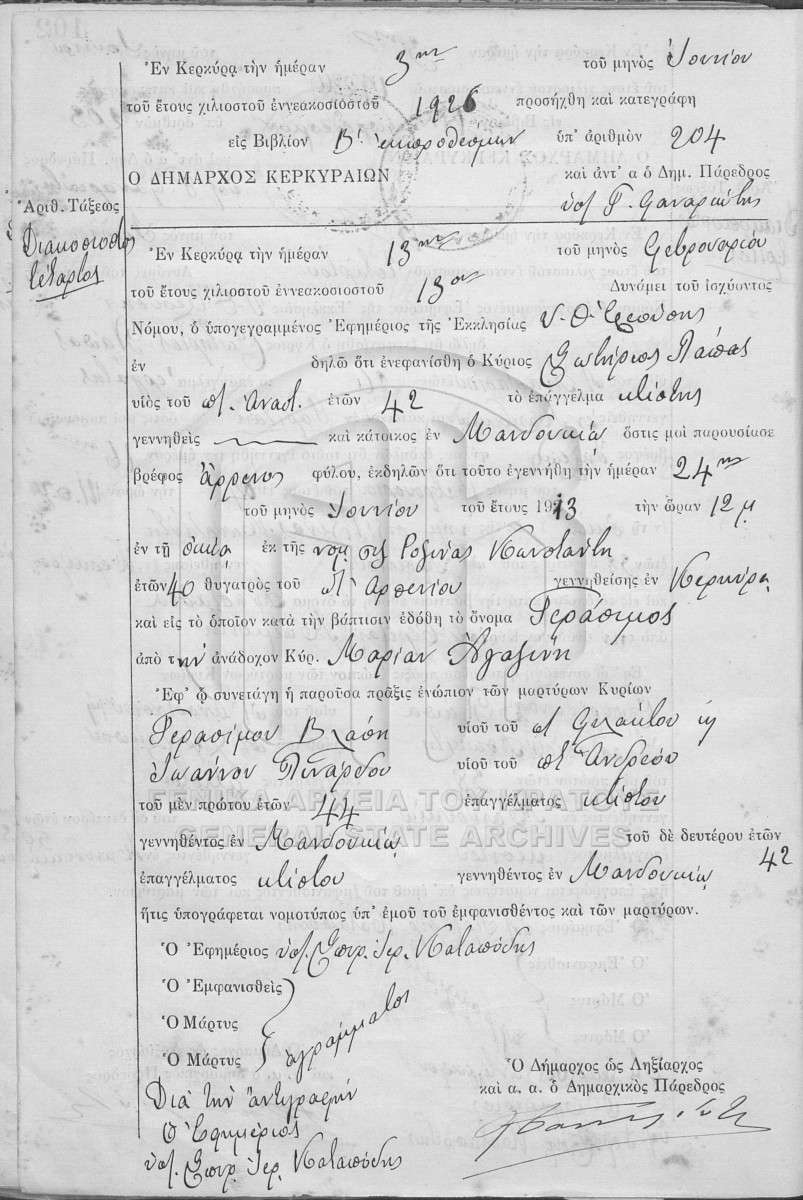 Ἐν Κερκύρᾳ τὴν ἡμέραν 3ην τοῦ μηνὸς Ἰουνίου
τοῦ ἔτους χιλιοστοῦ ἐννεακοσιοστοῦ 1926 προσήχθη καὶ κατεγράφη
εἰς Βιβλίον Β' ἐκπροθέσμων ὑπ' ἀριθμὸν 204
Ο ΔΗΜΑΡΧΟΣ ΚΕΡΚΥΡΑΙΩΝ καὶ ἀντ' α ὁ Δημ. Πάρεδρος
ὑπ. Γ.
Ἀριθ. Τάξεως
Διακοσιοστὸς
τέταρτος
Ἐν Κερκύρᾳ τὴν ἡμέραν 13ην τοῦ μηνὸς Φεβρουαρίου
τοῦ ἔτους χιλιοστοῦ ἐννεακοσιοστοῦ 13ου Δυνάμει τοῦ ἰσχύοντος
Νόμου, ὁ ὑπογεγραμμένος Ἐφημέριος τῆς Ἐκκλησίας Υ. Θ.
ἐν δηλῶ ὅτι ἐνεφανίσθη ὁ Κύριος Σωτήριος Πάπας
υἱὸς τοῦ ποτ. Αναστ. ἐτῶν 42 τὸ ἐπάγγελμα κτίστης
γεννηθεὶς καὶ κάτοικος ἐν Μανδουκίῳ ὅστις μοὶ παρουσίασε
βρέφος ἄρρενος φύλου, ἐκδηλῶν ὅτι τοῦτο ἐγεννήθη τὴν ἡμέραν 24ην
τοῦ μηνὸς Ἰουνίου τοῦ ἔτους 1913 τὴν ὥραν 12 μ
ἐν τῇ οἰκίᾳ ἐκ τῆς νομ. συζ Ροζίνας
ἐτῶν 40 θυγατρὸς τοῦ Ἀρσενίου γεννηθείσης ἐν Κερκύρᾳ
καὶ εἰς τὸ ὁποῖον κατὰ τὴν βάπτισιν ἐδόθη τὸ ὄνομα Γεράσιμος
ἀπὸ τὴν ἀνάδοχον Κύρ. Μαρίαν
Ἐφ' ᾧ συνετάγη ἡ παροῦσα πρᾶξις ἐνώπιον τῶν μαρτύρων Κυρίων
Γερασίμου Βλάση υἱοῦ τοῦ
Ἰωάννου Πινάρδου υἱοῦ τοῦ ποτ Ἀνδρέου
τοῦ μὲν πρώτου ἐτῶν 44 ἐπαγγέλματος κτίστου
ΓΕΝΙΚΑ ΑΡΧΕΙΑ ΤΟΥ ΚΡΑΤΟΥΣ
GENERAL STATE ARCHIVES
γεννηθέντος ἐν Μανδουκίῳ τοῦ δὲ δευτέρου ἐτῶν 42
ἐπαγγέλματος κτίστου γεννηθέντος ἐν Μανδουκίῳ
ἥτις ὑπογράφεται νομοτύπως ὑπ' ἐμοῦ τοῦ ἐμφανισθέντος καὶ τῶν μαρτύρων.
Ὁ Ἐφημέριος ὑπ. Σπυρ. Ἱερ. Καταπόδης
Ὁ Ἐμφανισθεὶς
Ὁ Μάρτυς ἀγράμματοι
Ὁ Μάρτυς
Ὁ Δήμαρχος ὡς Ληξίαρχος
καὶ α. α. ὁ Δημαρχικὸς Πάρεδρος
Διὰ τὴν ἀντιγραφὴν
Ὁ Ἐφημέριος
ὑπ. Σπυρ. Ἱερ. Καταπόδης